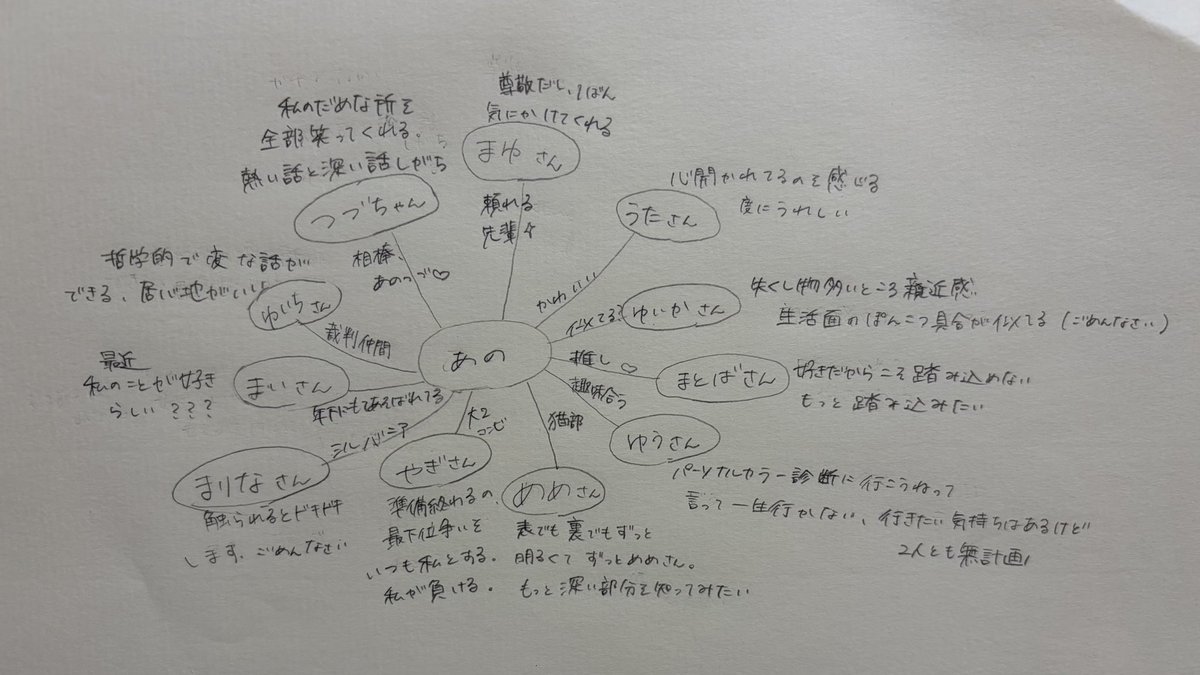 尊敬だし、1ばん
気にかけてくれる
まゆさん
頼れる
先輩
私のだめな所を
全部笑ってくれる。
熱い話と深い話しがち
つづちゃん
相棒、
あのつづ♡
心開かれてるのを感じる
度にうれしい
うたさん
かわいい
哲学的で変な話が
できる、居心地がいい
ゆいちさん
裁判仲間
あの
失くし物多いところ親近感
生活面のぽんこつ具合が似てる(ごめんなさい)
ゆいかさん
似てる?
最近
私のことが好き
らしい???
まいさん
年下にもてあそばれてる
推し♡
まとばさん
好きだからこそ踏み込めない
もっと踏み込みたい
趣味合う
ゆうさん
パーソナルカラー診断に行こうねって
言って一生行かない、行きたい気持ちはあるけど
2人とも無計画
シルバニア
まりなさん
触られるとドキドキ
します、ごめんなさい
大2
コンビ
やぎさん
準備終わるの、
最下位争いを
いつも私とする。
私が負ける。
猫部
めめさん
表でも裏でもずっと
明るくてずっとめめさん。
もっと深い部分を知ってみたい